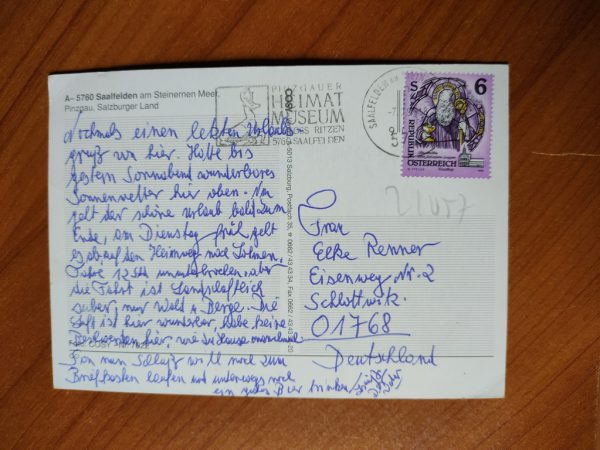 A– 5760 Saalfelden am Steinernen Meer
Pinzgau, Salzburger Land
PINZGAUER
HEIMAT
MUSEUM
SCHLOSS RITZEN
5760 SAALFELDEN
SAALFELDEN AM
S 6
REPUBLIK
ÖSTERREICH
COSY
A-5013 Salzburg, Postfach 35, ☎ 0662/43 43 34, Fax 0662/43
Nochmals einen letzten Urlaubs
gruß von hier. Hatte bis
gestern Sonnabend wunderbares
Sonnenwetter hier oben. Nun
geht der schöne Urlaub bald zum
Ende, am Dienstag früh geht
es ab auf den Heimweg nach
Fahre 12 Std ununterbrochen, aber
die Fahrt ist Landschaftlich
schön, nur Wald u. Berge. Die
Luft ist hier wunderbar, habe keine
Beschwerden hier, wie zu Hause manchmal
Foto COSY
Zum Schluß will noch zum
Briefkasten laufen und unterwegs noch
ein gutes Bier trinken
Frau
Elke Renner
Eisenweg Nr. 2
Schlottwitz.
01768
Deutschland